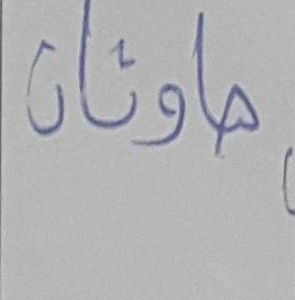 هاوئان